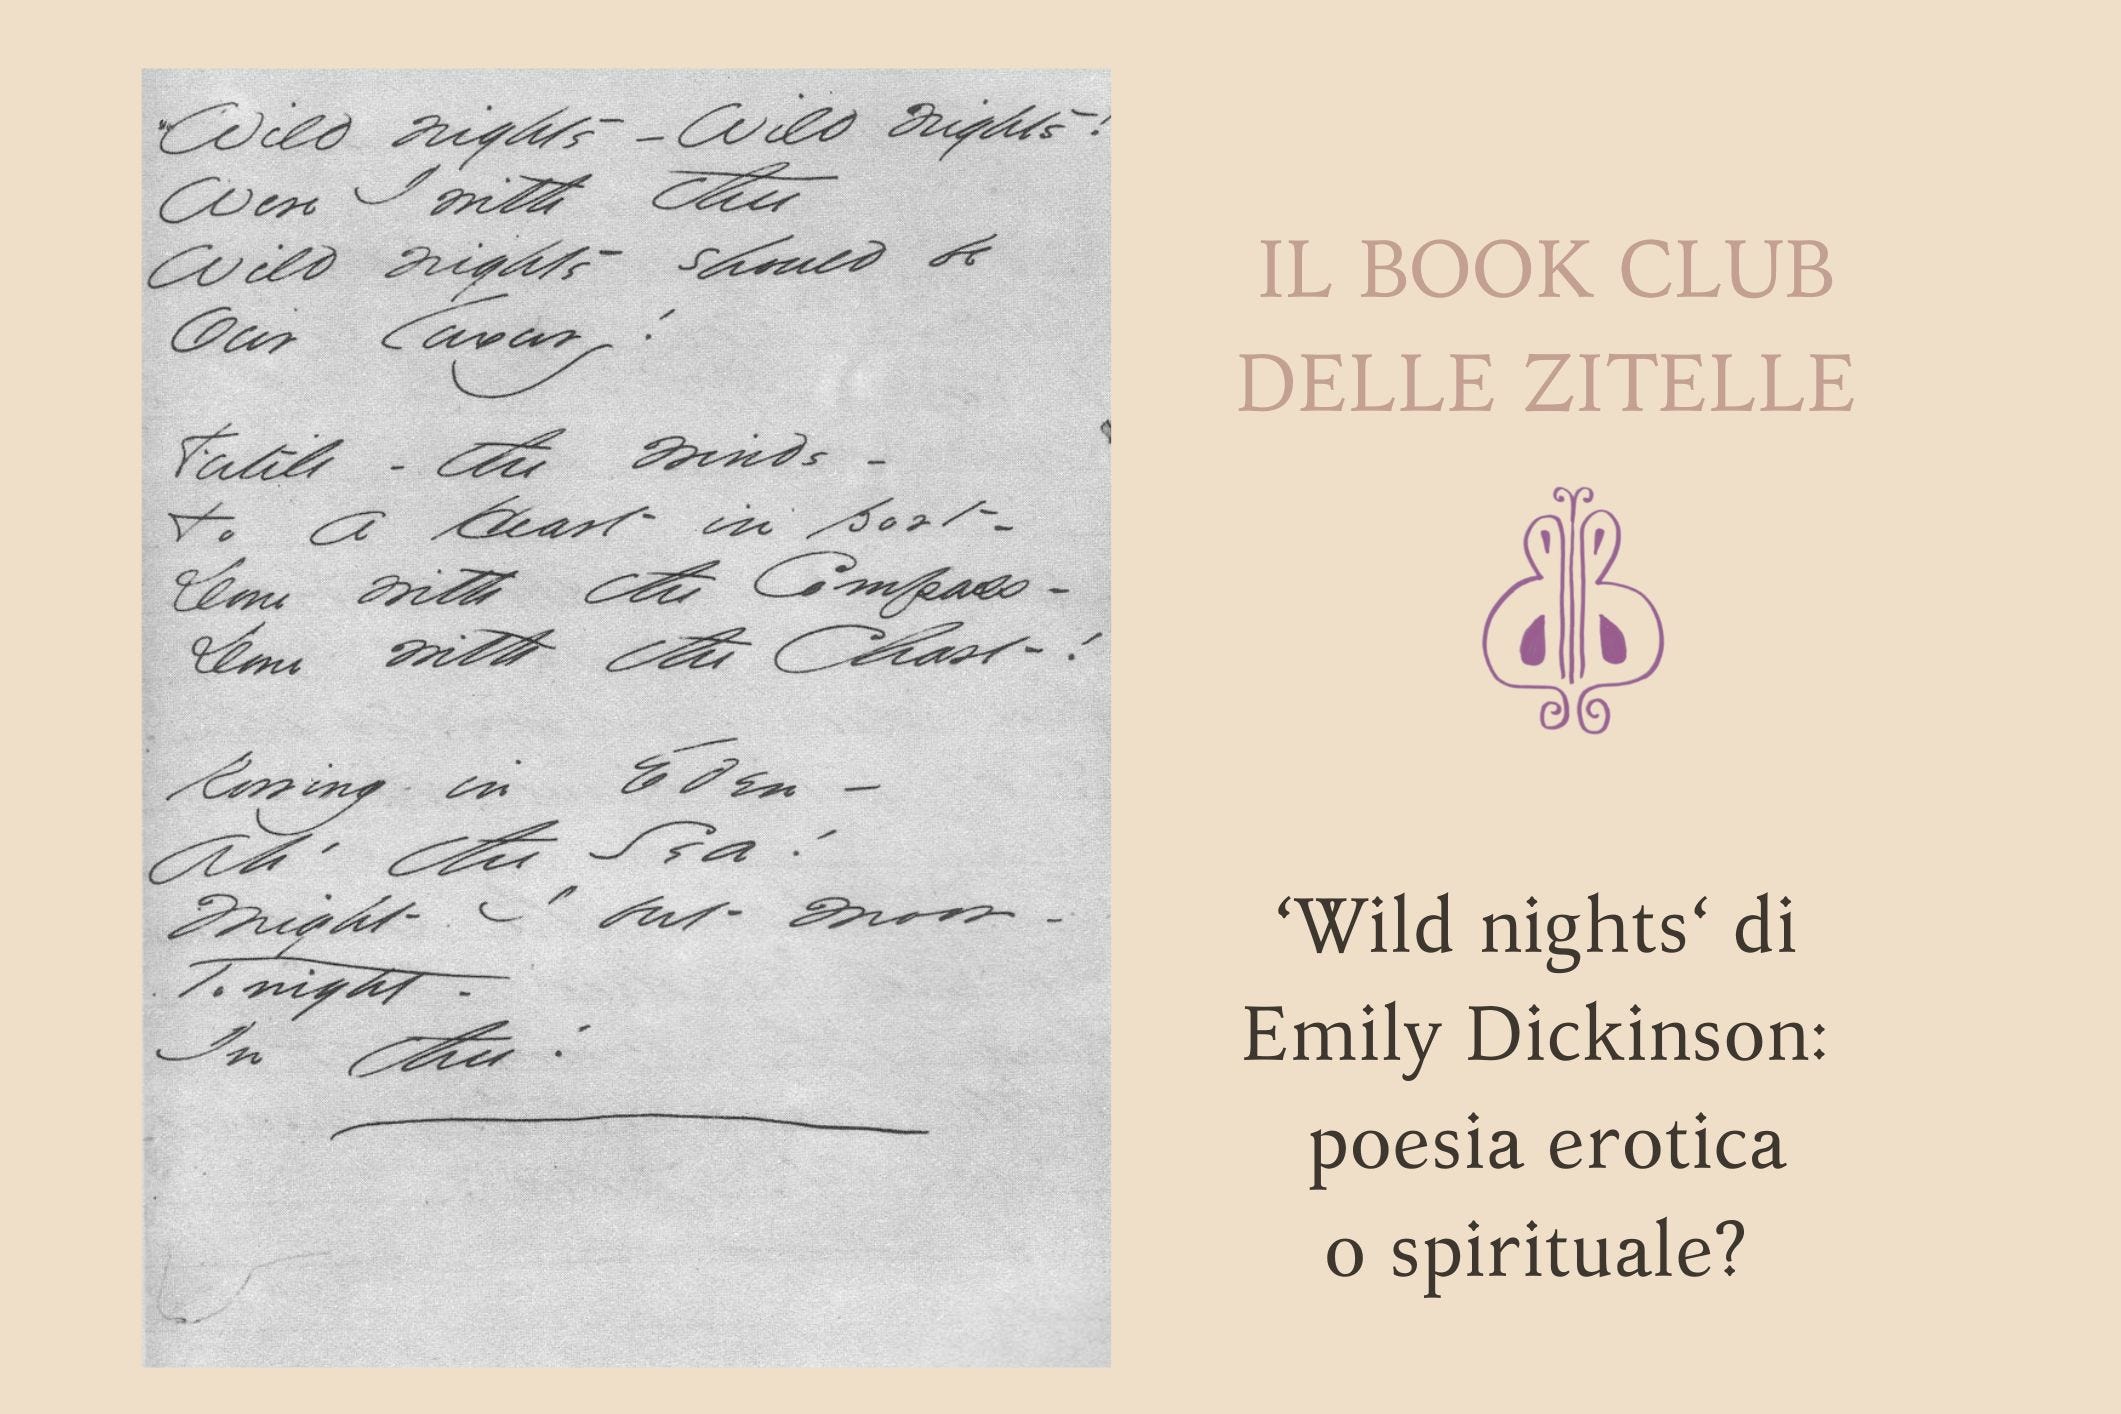 Wild nights - Wild nights!
Were I with thee
Wild nights should be
Our luxury!
Futile - the winds -
To a Heart in port -
Done with the Compass -
Done with the Chart!
Rowing in Eden -
Ah! the Sea!
Might I but moor -
Tonight -
In thee!
IL BOOK CLUB
DELLE ZITELLE
‘Wild nights‘ di
Emily Dickinson:
poesia erotica
o spirituale?